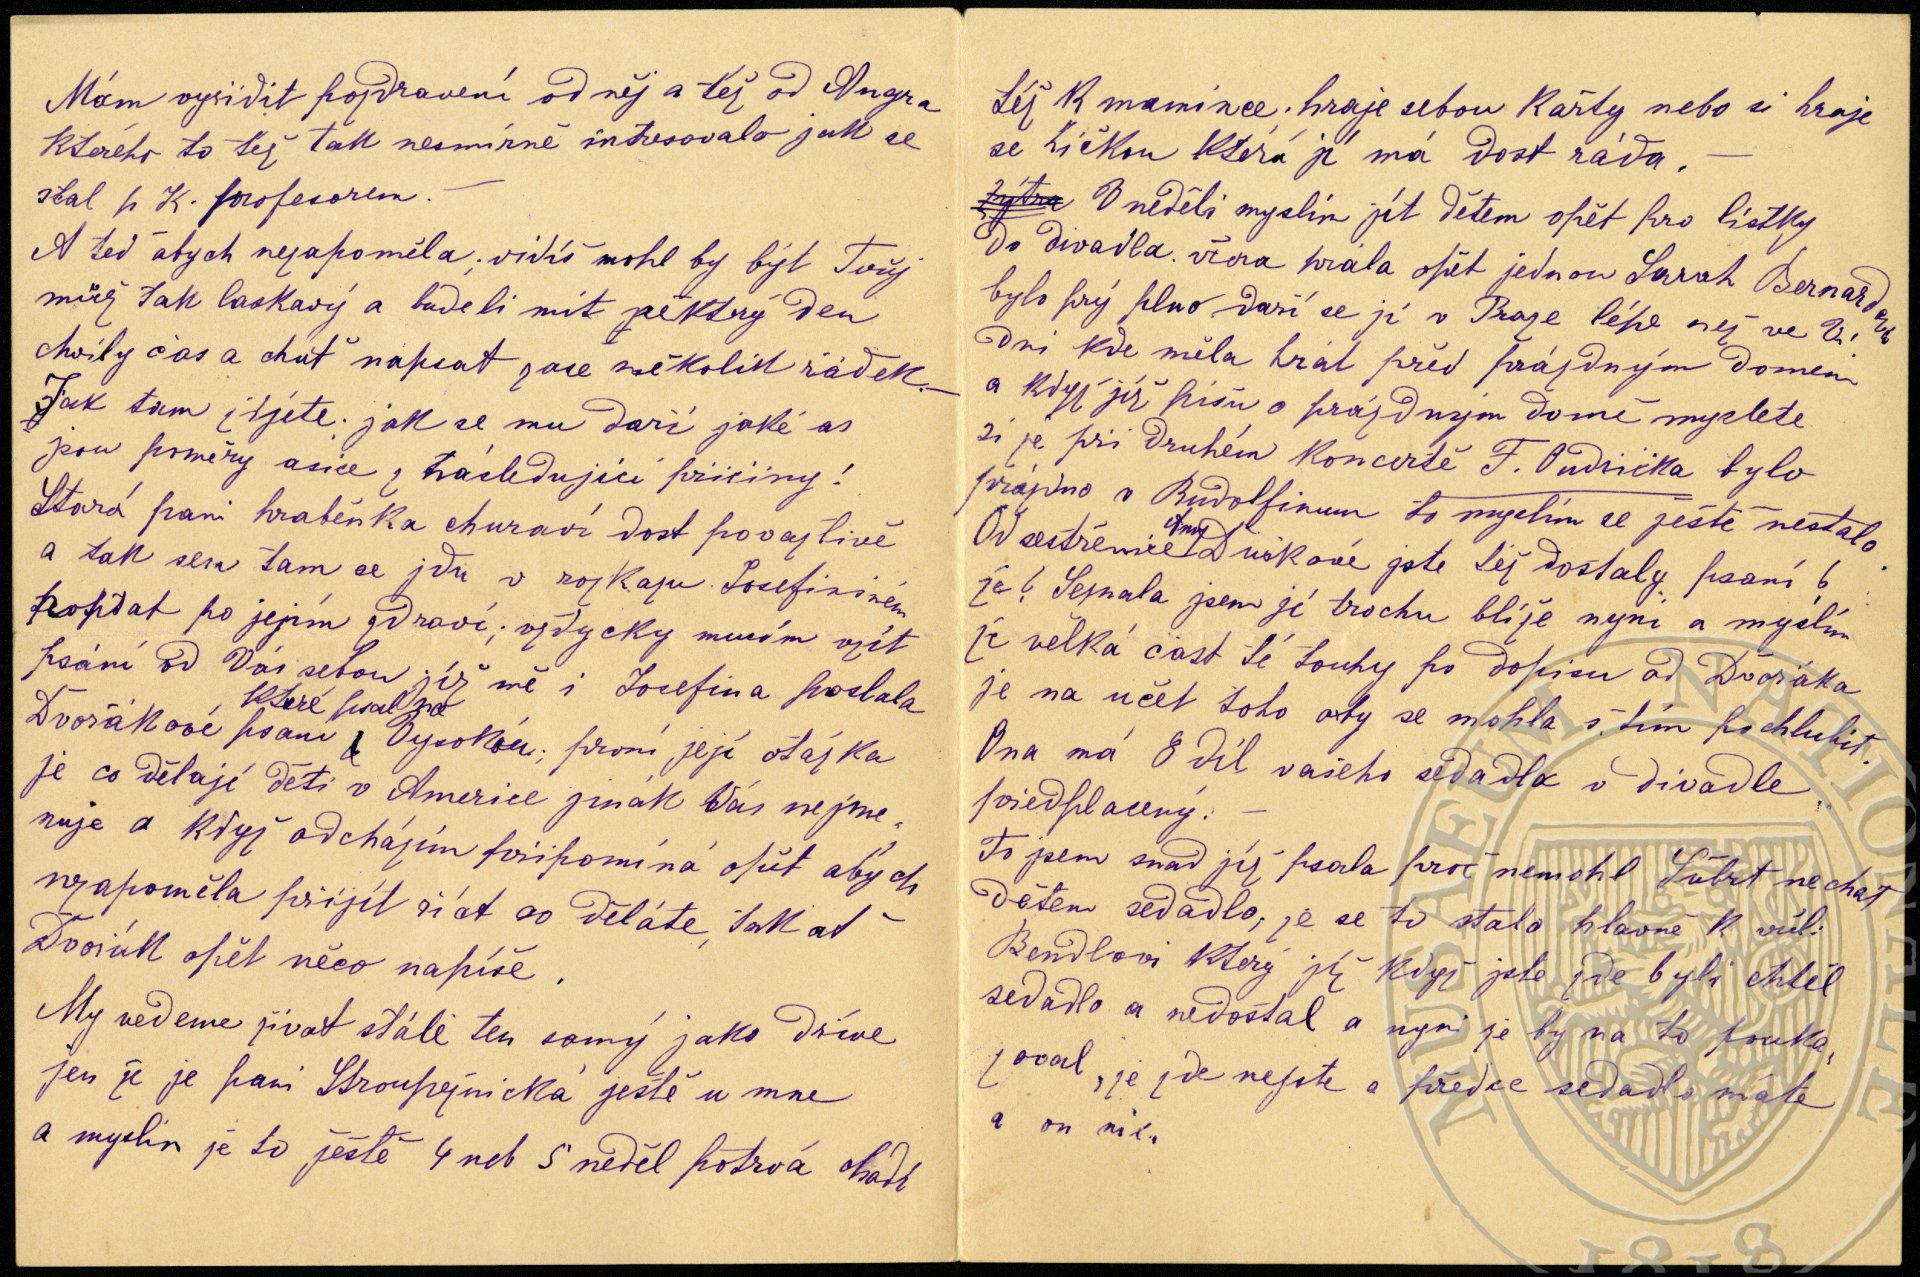 Mám vyřídit pozdravení od něj a též od Angra
kterého to též tak nesmírně intresovalo jak se
stal p K. profesorem. —
A teď abych nezapoměla; vidíš mohl by být Tvůj
muž tak laskavý a budeli mít některý den
chvíly čas a chuť napsat zase několik řádek. —
Jak tam žijete. jak se mu daří jaké as
jsou poměry asice z následující příčiny!
Stará paní hraběnka churaví dost povážlivě
a tak sem tam se jdu v rozkazu Josefininém
poptat po jejím zdraví; vždycky musím vzít
psání od Vás sebou již mě i Josefina poslala
Dvořákové psaní které psal na Vysokou; první její otázka
je co dělají děti v Americe jinák Vás nejme-
nuje a když odcházím připomíná opět abych
nezapoměla přijít říct co děláte, tak ať
Dvořák opět něco napíše.
My vedeme život stále ten samý jako dříve
jen že je paní Stroupežnická ještě u mne
a myslím že to ještě 4 neb 5 neděl potrvá chodí
též k mamince. hraje sebou karty nebo si hraje
se Ličkou která jí má dost ráda. —
Zýtra V neděli myslím jít dětem opět pro lístky
do divadla. včera hrála opět jednou Sarah Bernardova
bylo prý plno daří se jí v Praze lépe než ve Ví-
dni kde měla hrát před prázdným domem
a když již píšu o prázdným domě myslete
si že při druhém koncertě F. Ondříčka bylo
prázdno v Rudolfinum to myslím se ještě nestalo.
Od sestřenice Anny Duškové jste též dostaly psaní?
že? Seznala jsem jí trochu blíže nyní a myslím
že velká část té touhy po dopisu od Dvořáka
je na účet toho aby se mohla s tím pochlubit.
Ona má 8 díl vašeho sedadla v divadle
předplacený. —
To jsem snad již psala proč nemohl Šubrt nechat
dětem sedadlo, že se to stalo hlavně k vůli
Bendlovi který již když jste zde byli chtěl
sedadlo a nedostal a nyní že by na to pouka-
zoval, že zde nejste a předce sedadlo máte
a on nic.
MUSAEUM NATIONALE
1818